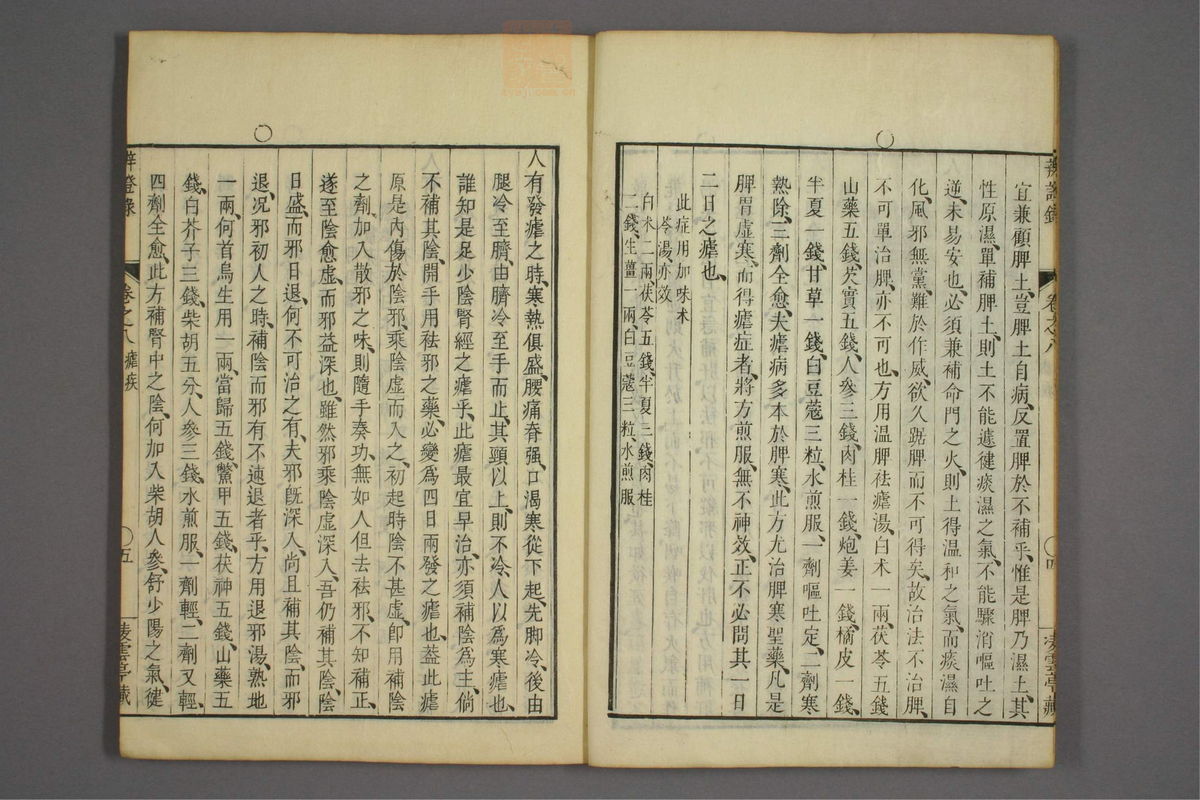 辨證錄 卷之八 〇四 凌雲亭藏
宜兼顧脾土、豈脾土自病、反置脾於不補乎、惟是脾乃濕土、其
性原濕、單補脾土、則土不能遽健、痰濕之氣、不能驟消、嘔吐之
逆、未易安也、必須兼補命門之火、則土得溫和之氣、而痰濕自
化、風邪無黨、難於作威、欲久踞脾而不可得矣、故治法不治脾、
不可單治脾、亦不可也、方用溫脾祛瘧湯、白朮一兩、茯苓五錢
山藥五錢、芡實五錢、人參三錢、肉桂一錢、炮姜一錢、橘皮一錢、
半夏一錢、甘草一錢、白豆蔻三粒、水煎服、一劑嘔吐定、二劑寒
熱除、三劑全愈、夫瘧病多本於脾寒、此方尤治脾寒聖藥、凡是
脾胃虛寒、而得瘧症者、將方煎服、無不神效、正不必問其一日
二日之瘧也、
此症用加味朮
苓湯、亦效
白朮二兩茯苓五錢、半夏三錢、肉桂
二錢、生薑一兩、白豆蔻三粒、水煎服
人有發瘧之時、寒熱俱盛、腰痛脊强、口渴寒從下起、先脚冷、後由
腿冷至臍、由臍冷至手而止、其頸以上、則不冷、人以爲寒瘧也、
誰知是足少陰腎經之瘧乎、此瘧最宜早治、亦須補陰爲主、倘
不補其陰、開手用祛邪之藥、必變爲四日兩發之瘧也、葢此瘧
原是内傷於陰邪、乘陰虛而入之、初起時陰不甚虛、卽用補陰
之劑、加入散邪之味、則隨手奏功、無如人但去祛邪、不知補正、
遂至陰愈虛、而邪益深也、雖然邪乘陰虛深入、吾仍補其陰、陰
日盛、而邪日退、何不可治之有、夫邪旣深入、尚且補其陰、而邪
退、况邪初入之時、補陰而邪有不速退者乎、方用退邪湯、熟地
一兩、何首烏生用一兩、當歸五錢、鱉甲五錢、茯神五錢、山藥五
錢、白芥子三錢、柴胡五分、人參三錢、水煎服、一劑輕、二劑又輕、
四劑全愈、此方補腎中之陰、何加入柴胡人參、舒少陽之氣、健
辨證錄 卷之八 瘧疾 〇五 凌雲亭藏